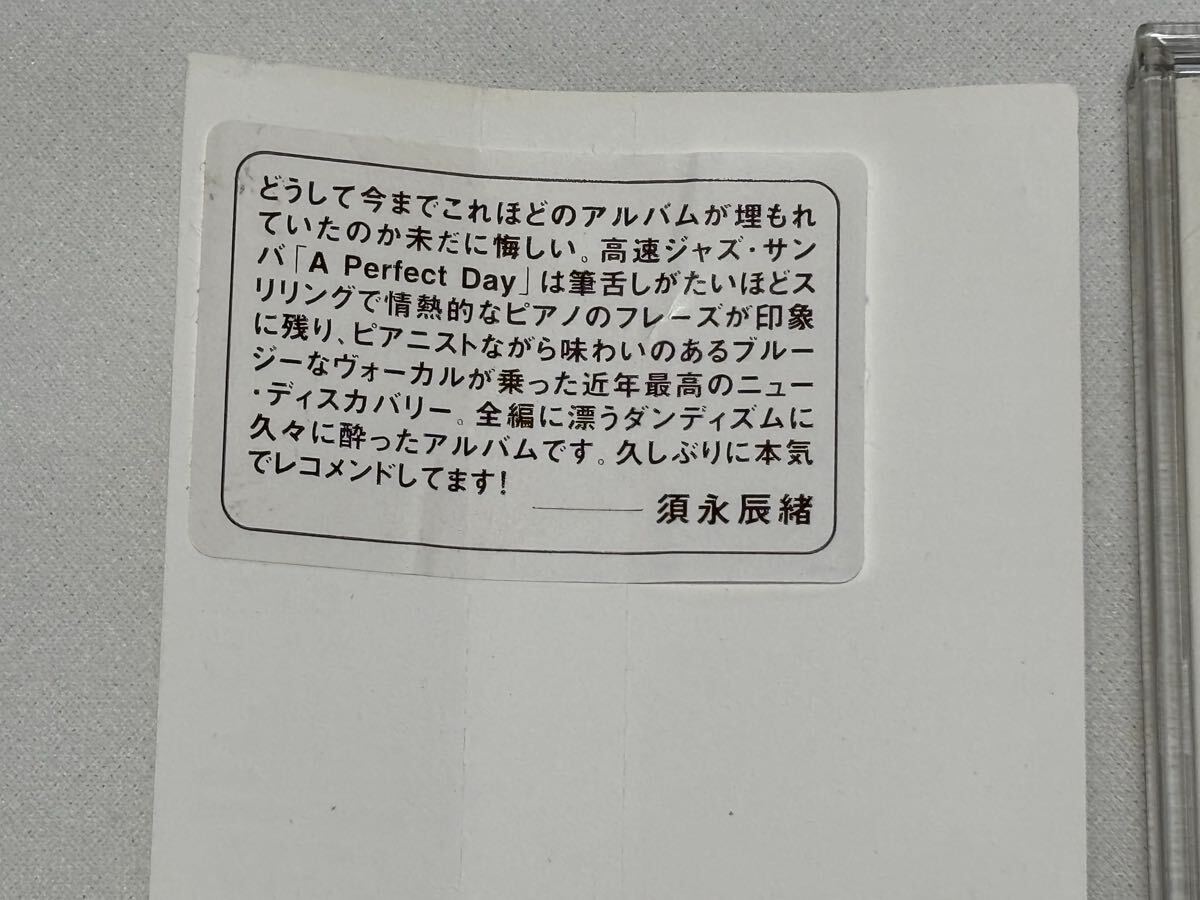 どうして今までこれほどのアルバムが埋もれ
ていたのか未だに悔しい。高速ジャズ・サン
バ「A Perfect Day」は筆舌しがたいほどス
リリングで情熱的なピアノのフレーズが印象
に残り、ピアニストながら味わいのあるブルー
ジーなヴォーカルが乗った近年最高のニュー
・ディスカバリー。全編に漂うダンディズムに
久々に酔ったアルバムです。久しぶりに本気
でレコメンドしてます!
須永辰緒